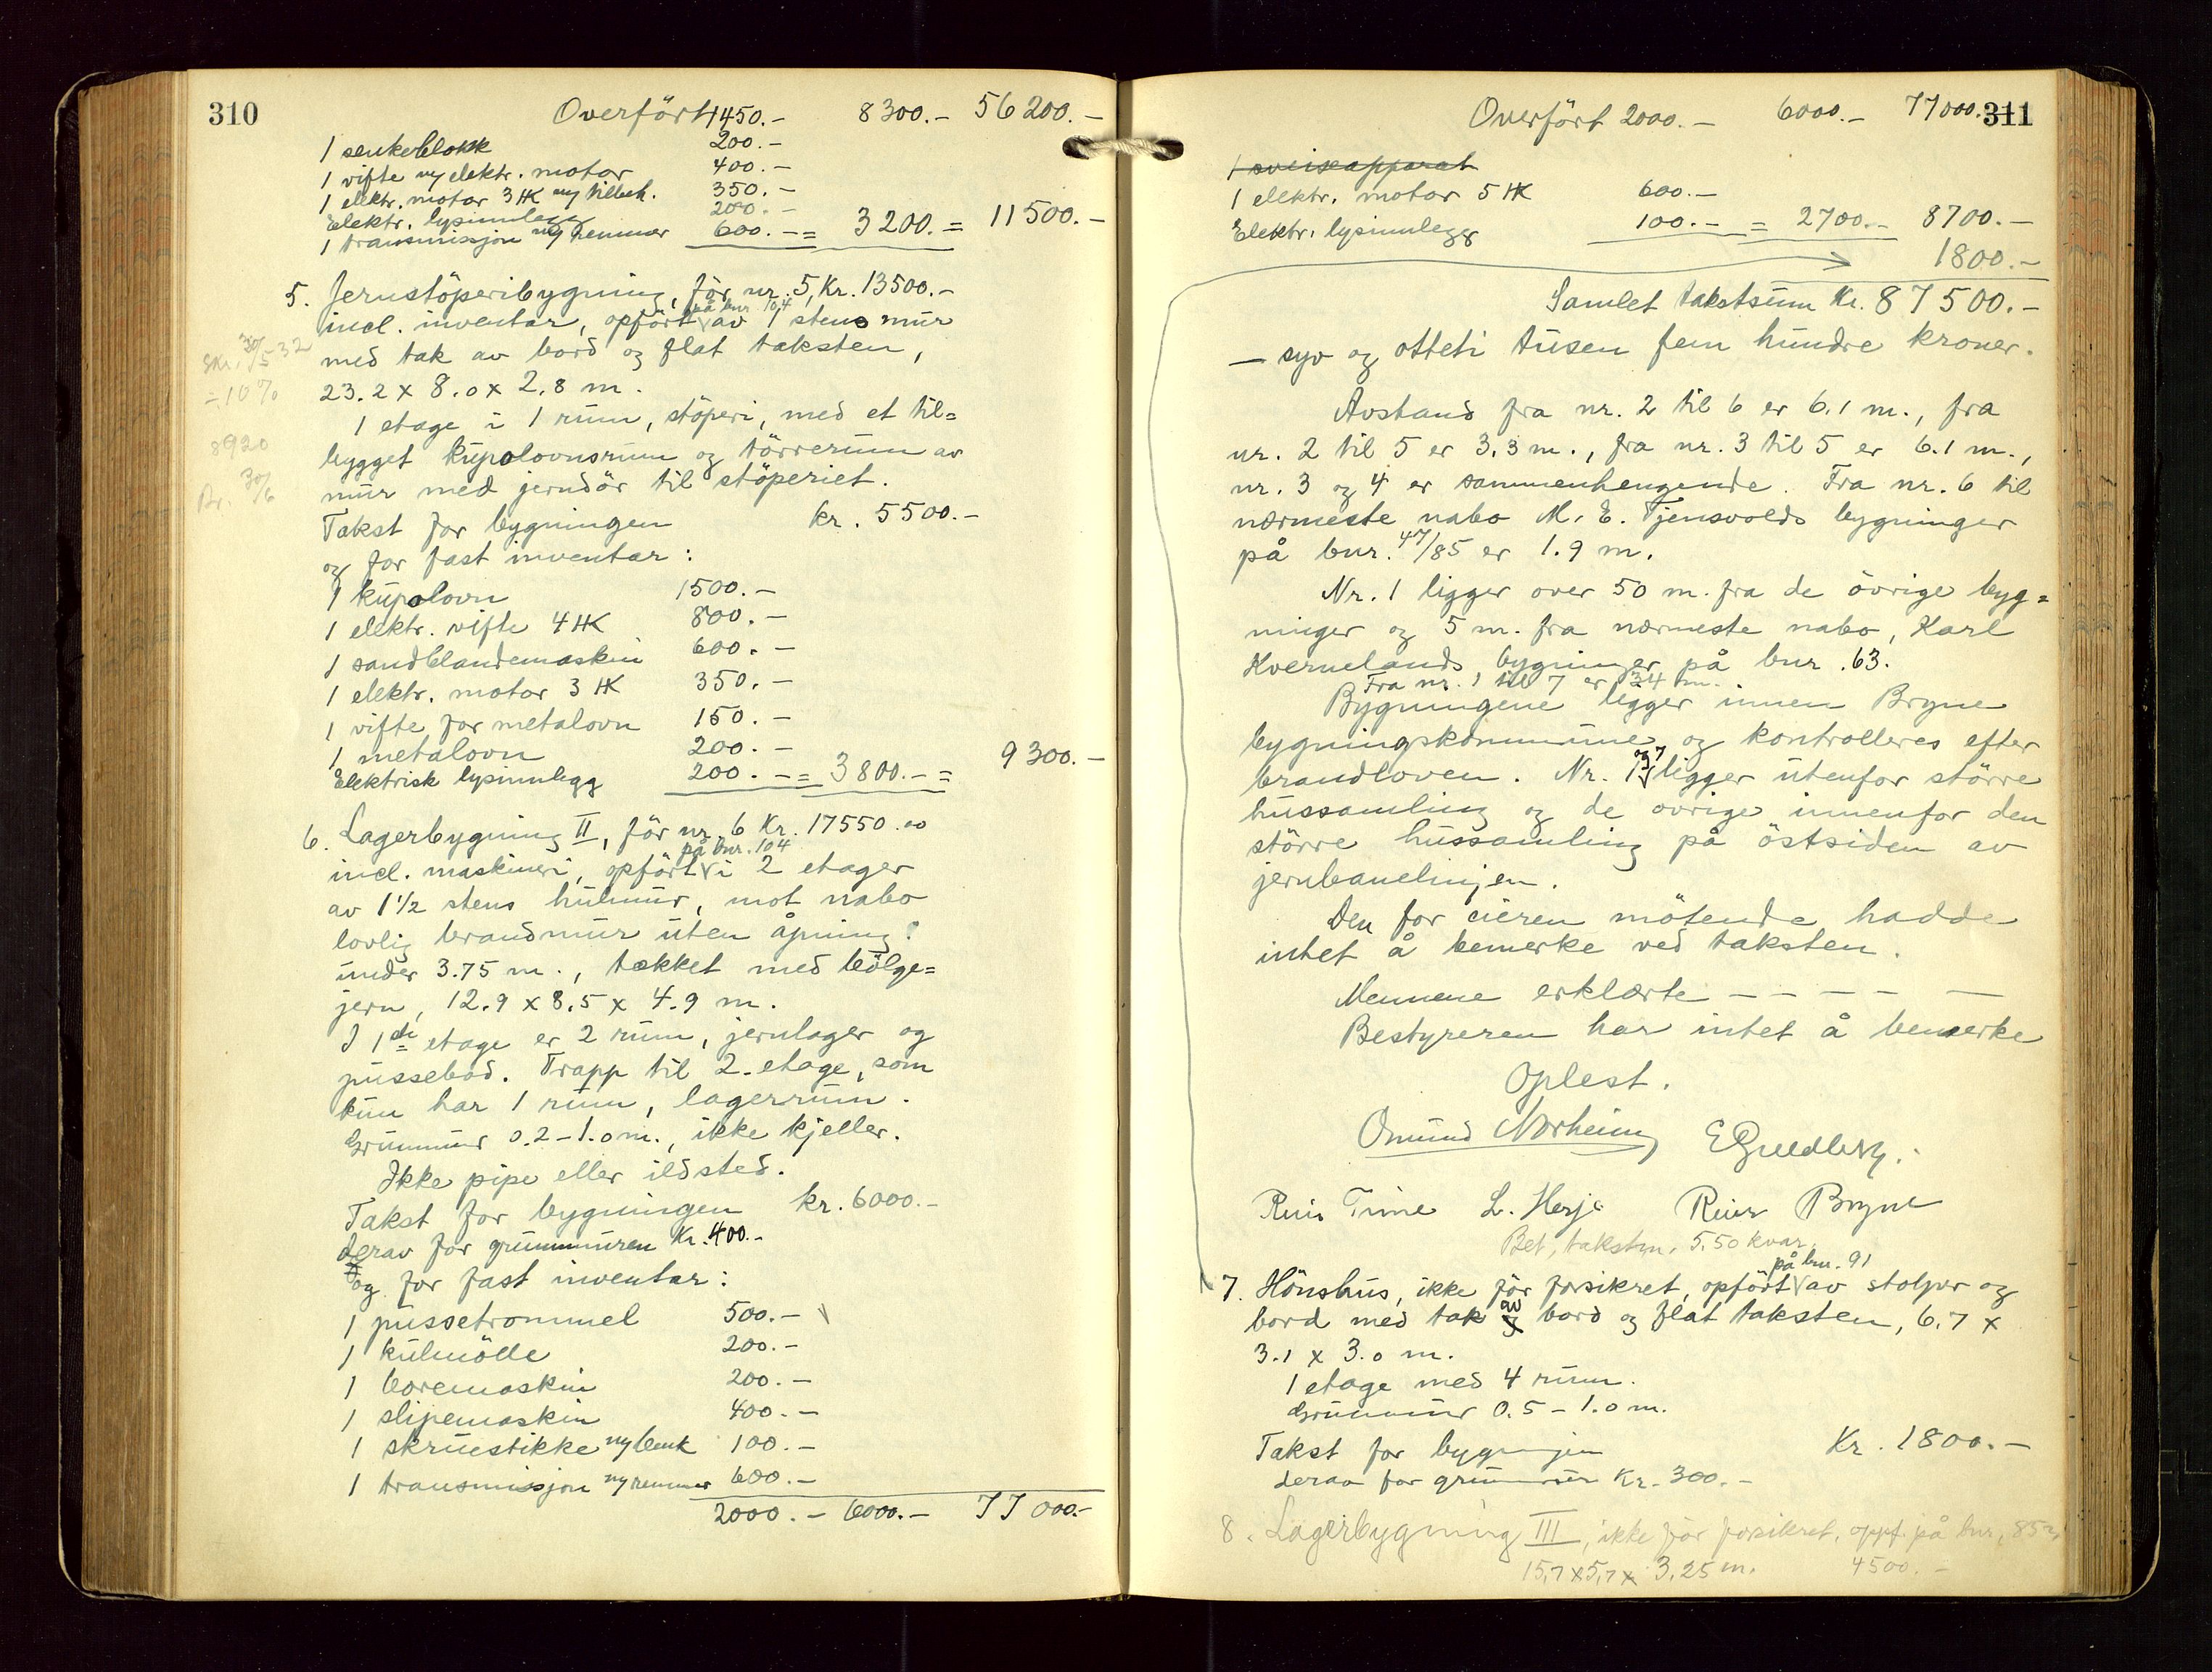 310
Overfört 1450.- 8300.- 56200.-
1 senkeblokk 200.-
1 vifte m/ elektr. motor 400.-
1 elektr. motor 3 HK m/ tilbeh. 350.-
Elektr. lysinnlegg 200.-
1 transmissjon m/ remmer 600.- = 3200.= 11500.-
5. Jernstöperibygning, för nr. 5, Kr. 13500.-
incl. inventar, opfört på bnr 104 av 1 stens mur
Skr. 30/5 32
med tak av bord og flat taksten,
÷ 10%
23.2 x 8.0 x 2.8 m.
1 etage i 1 rum, stöperi, med et til=
8920
bygget kupolovnsrum og törrerum av
Pr. 30/6
mur med jerndör til stöperiet.
Takst for bygningen kr. 5500.-
og for fast inventar:
1 kupolovn 1500.-
1 elektr. vifte 4 HK 800.-
1 sandblandemaskin 600.-
1 elektr. motor 3 HK 350.-
1 vifte for metalovn 150.-
1 metalovn 200.-
Elektrisk lysinnlegg 200.- = 3800.- = 9300.-
6. Lagerbygning II, för nr. 6 Kr. 17550.00
incl. maskineri, opfört på bnr. 104 i 2 etager
av 1½ stens hulmur, mot nabo
lovlig brandmur uten åpning
under 3.75 m., tækket med bölge=
jern, 12.9 x 8.5 x 4.9 m.
I 1ste etage er 2 rum, jernlager og
pussebod. Trapp til 2. etage, som
kun har 1 rum, lagerrum.
Grunnmur 0.2 - 1.0 m., ikke kjeller.
Ikke pipe eller ildsted.
Takst for bygningen kr. 6000.-
derav for grunnmuren Kr. 400.-
og for fast inventar:
1 pussetrommel 500.-
1 kulmölle 200.-
1 boremaskin 200.-
1 slipemaskin 400.-
1 skruestikke m/ benk 100.-
1 transmissjon m/ remmer 600.-
2000.- 6000.- 77000.-
311
Overfört 2000.- 6000.- 77000.-
1 sveiseapparat
1 elektr. motor 5 HK 600.-
Elektr. lysinnlegg 100.- = 2700.- 8700.-
1800.-
Samlet takstsum Kr. 87500.-
- syv og otteti tusen fem hundre kroner.
Avstand fra nr. 2 til 6 er 6.1 m., fra
nr. 2 til 5 er 3.3 m., fra nr. 3 til 5 er 6.1 m.,
nr. 3 og 4 er sammenhengende. Fra nr. 6 til
nærmeste nabo M. E. Tjensvolds bygninger
på bnr. 47/85 er 1.9 m.
Nr. 1 ligger over 50 m. fra de övrige byg=
ninger og 5 m. fra nærmeste nabo, Karl
Kvernelands bygninger på bnr. 63.
Fra nr. 1 til 7 er 34 m.
Bygningene ligger innen Bryne
bygningskommune og kontrolleres efter
brandloven. Nr. 1 og 7 ligger utenfor större
hussamling og de övrige innenfor den
större hussamling på östsiden av
jernbanelinjen.
Den for eieren mötende hadde
intet å bemerke ved taksten.
Mennene erklærte - - - - -
Bestyreren har intet å bemerke
Oplest.
Omund Norheim
Reier Time L. Herje Reier Bryne
Bet. takstm. 5,50 kvar.
7. Hönshus, ikke för forsikret, opfört på bnr. 91 av stolper og
bord med tak av bord og flat taksten, 6.7 x
3.1 x 3.0 m.
1 etage med 4 rum.
Grunnmur 0.5 - 1.0 m.
Takst for bygningen Kr. 1800.-
derav for grunnmur Kr. 300.-
8. Lagerbygning III, ikke för forsikret, oppf. på bnr. 85
15,7 x 5,7 x 3.25 m. 4500.-